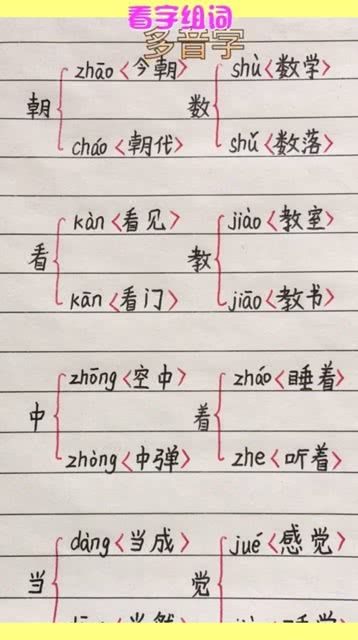 看字组词
多音字
zhāo〈今朝〉 shù〈数学〉
朝 数
cháo〈朝代〉 shǔ〈数落〉
kàn〈看见〉 jiào〈教室〉
看 教
kān〈看门〉 jiāo〈教书〉
zhōng〈空中〉 zháo〈睡着〉
中 着
zhòng〈中弹〉 zhe〈听着〉
dàng〈当成〉 jué〈感觉〉
当 觉